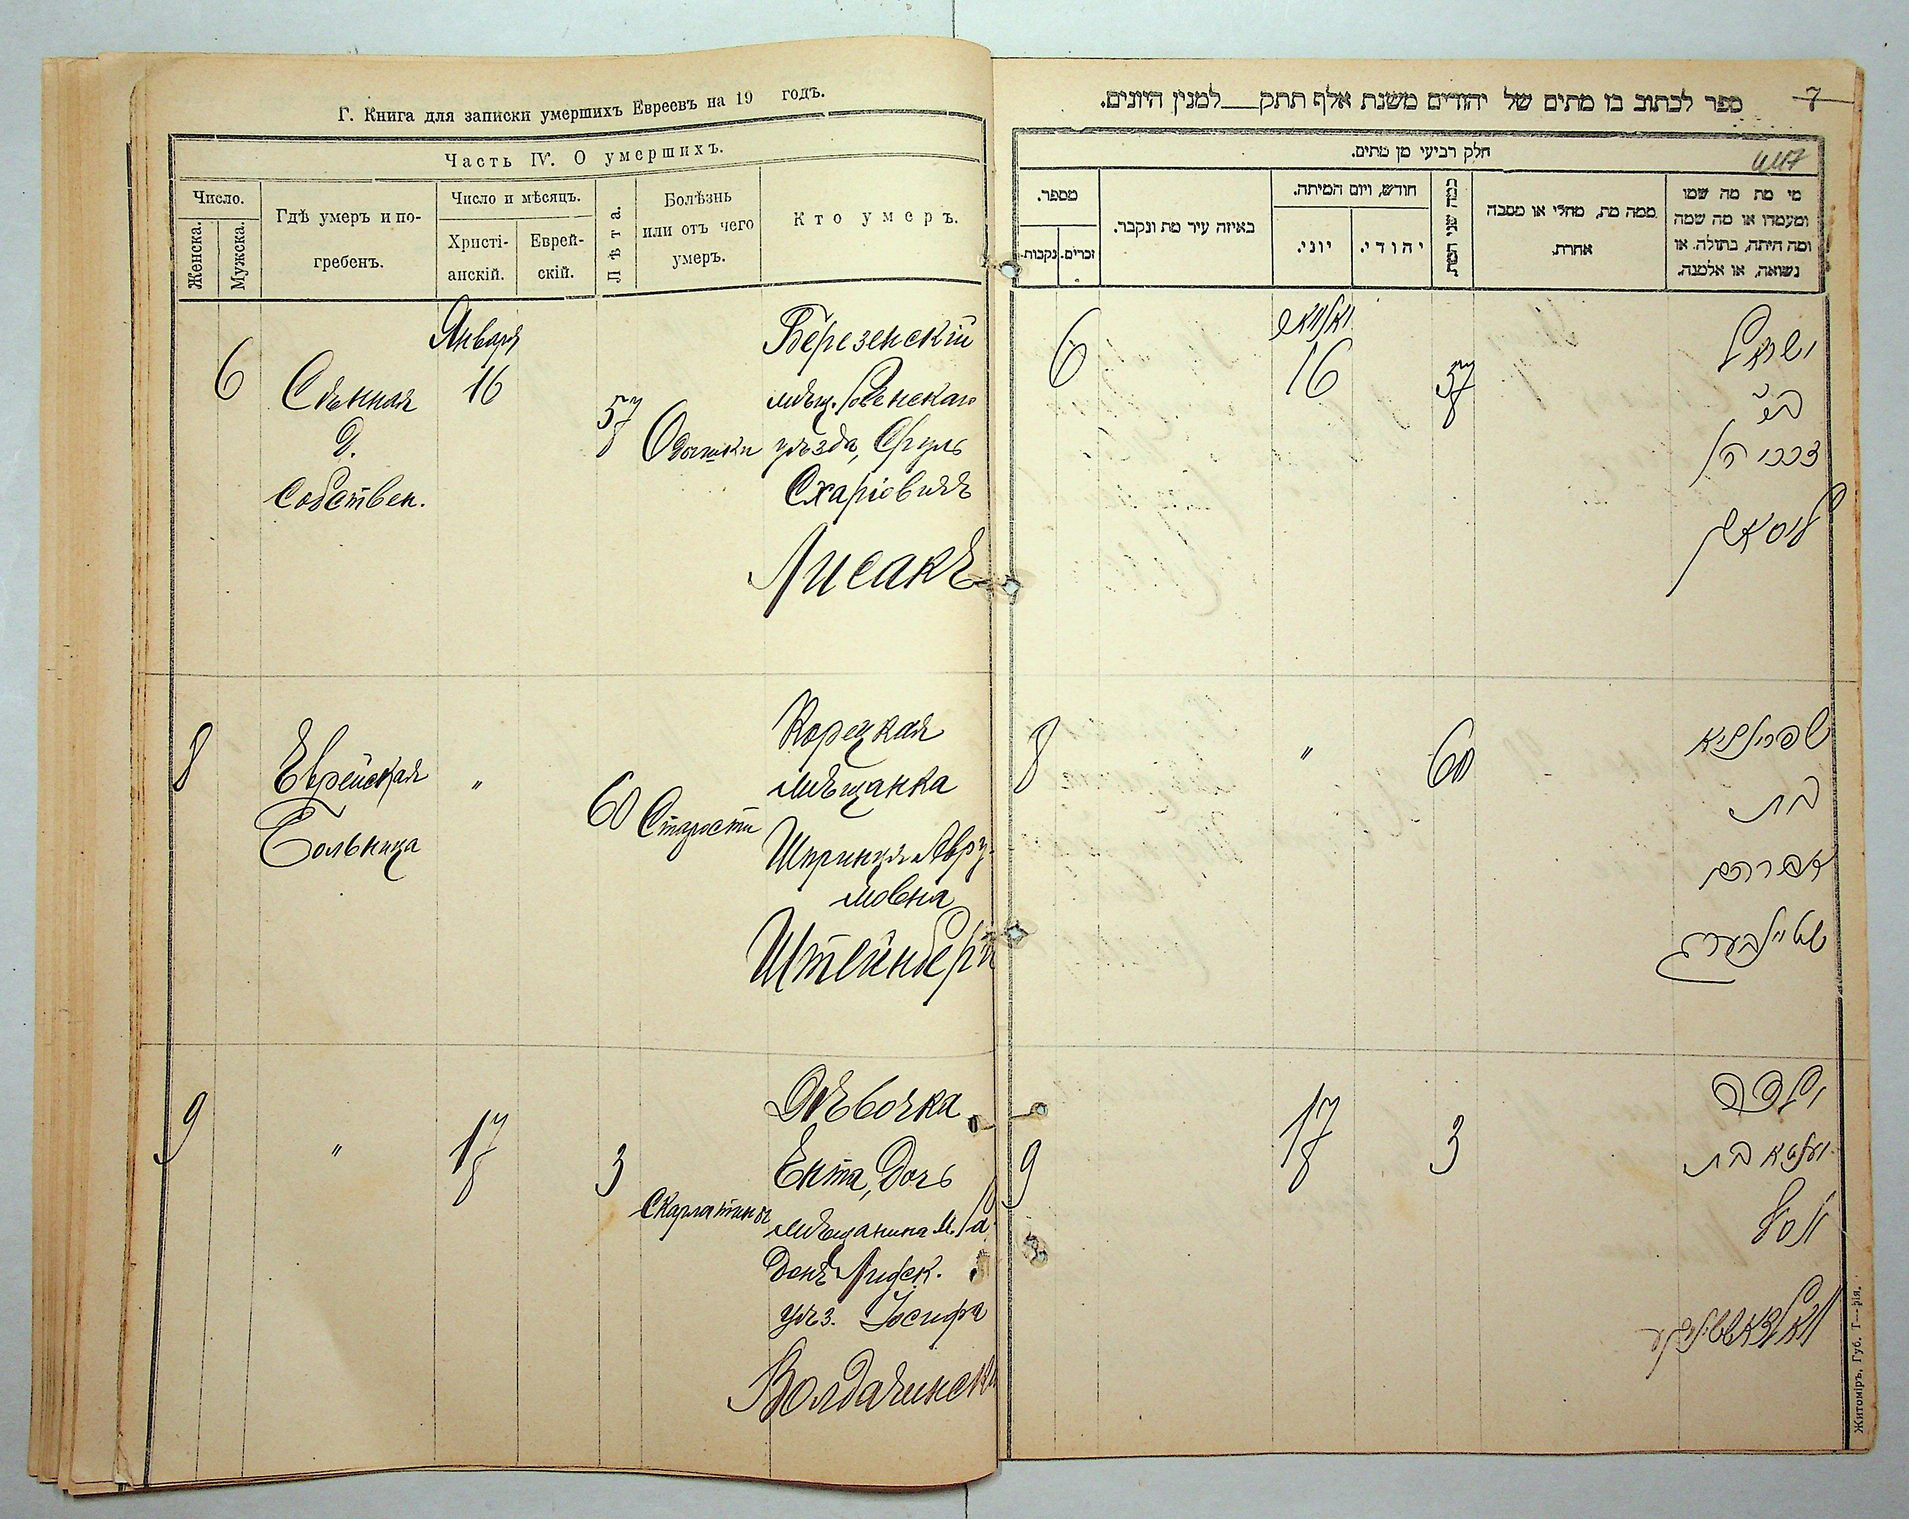 Г. Книга для записки умершихъ Евреевъ на 19 годъ.
Часть IV. О умершихъ.
Число.
Женска.
Мужска.
Гдѣ умеръ и по-
гребенъ.
Число и мѣсяцъ.
Христі-
анскій.
Еврей-
скій.
Лѣта.
Болѣзнь
или отъ чего
умеръ.
Кто умеръ.
6
Сѣнная
д.
собствен.
Января
16
57
Одышки
Березенскій
мѣщ. Ровенскаго
уѣзда, Сруль
Лисакъ
8
Еврейская
Больница
"
60
Старости
Корецкая
мѣщанка
Шпринца Авру-
мовна
Штейнберг
9
"
17
3
Скарлатины
Дѣвочка
Ента, дочь
мѣщанина м. Ра-
Лидск.
уѣз. Іосифа
ספר לכתוב בו מתים של יהודים משנת אלף תתק למנין היונים.
7
חלק רביעי מן מתים.
מספר.
נקבות.
זכרים.
באיזה עיר מת ונקבר.
חודש, ויום המיתה.
יוני.
יהודי.
כמה שני המת
ממה מת, מחלי או מסבה
אחרת.
מי מת מה שמו
ומעמדו או מה שמה
ומה היתה, בתולה, או
נשואה, או אלמנה.
6
יאנוואר
16
57
ישראל
8
"
60
שפרינציא
בת
אברהם
שטיינבערג
9
17
3
ילדה
יענטא בת
יוסף
Житоміръ, Губ. Т—фія.